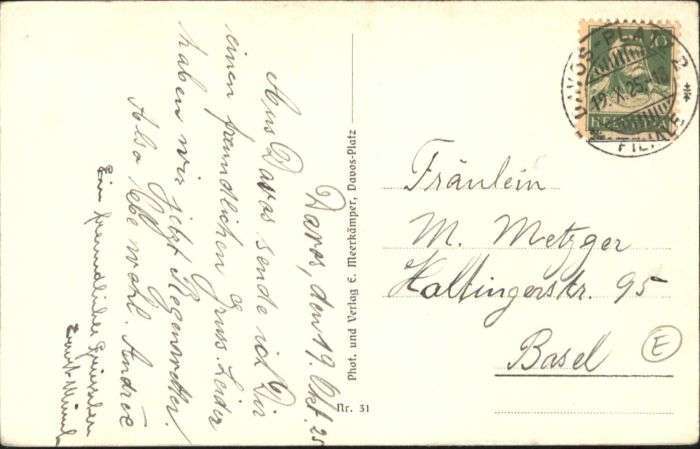 Davos, den 19. Okt. 25
Aus Davos sende ich Dir
einen freundlichen Gruss. Leider
haben wir jetzt Regenwetter.
Also lebe wohl. Andrée
Ein freundliches
Ernst
Phot. und Verlag E. Meerkämper, Davos-Platz
Nr. 31
10
DAVOS-PLATZ
19.X.25
FILIALE
HELVETIA
Fräulein
M. Metzger
Haltingerstr. 95
Basel
E